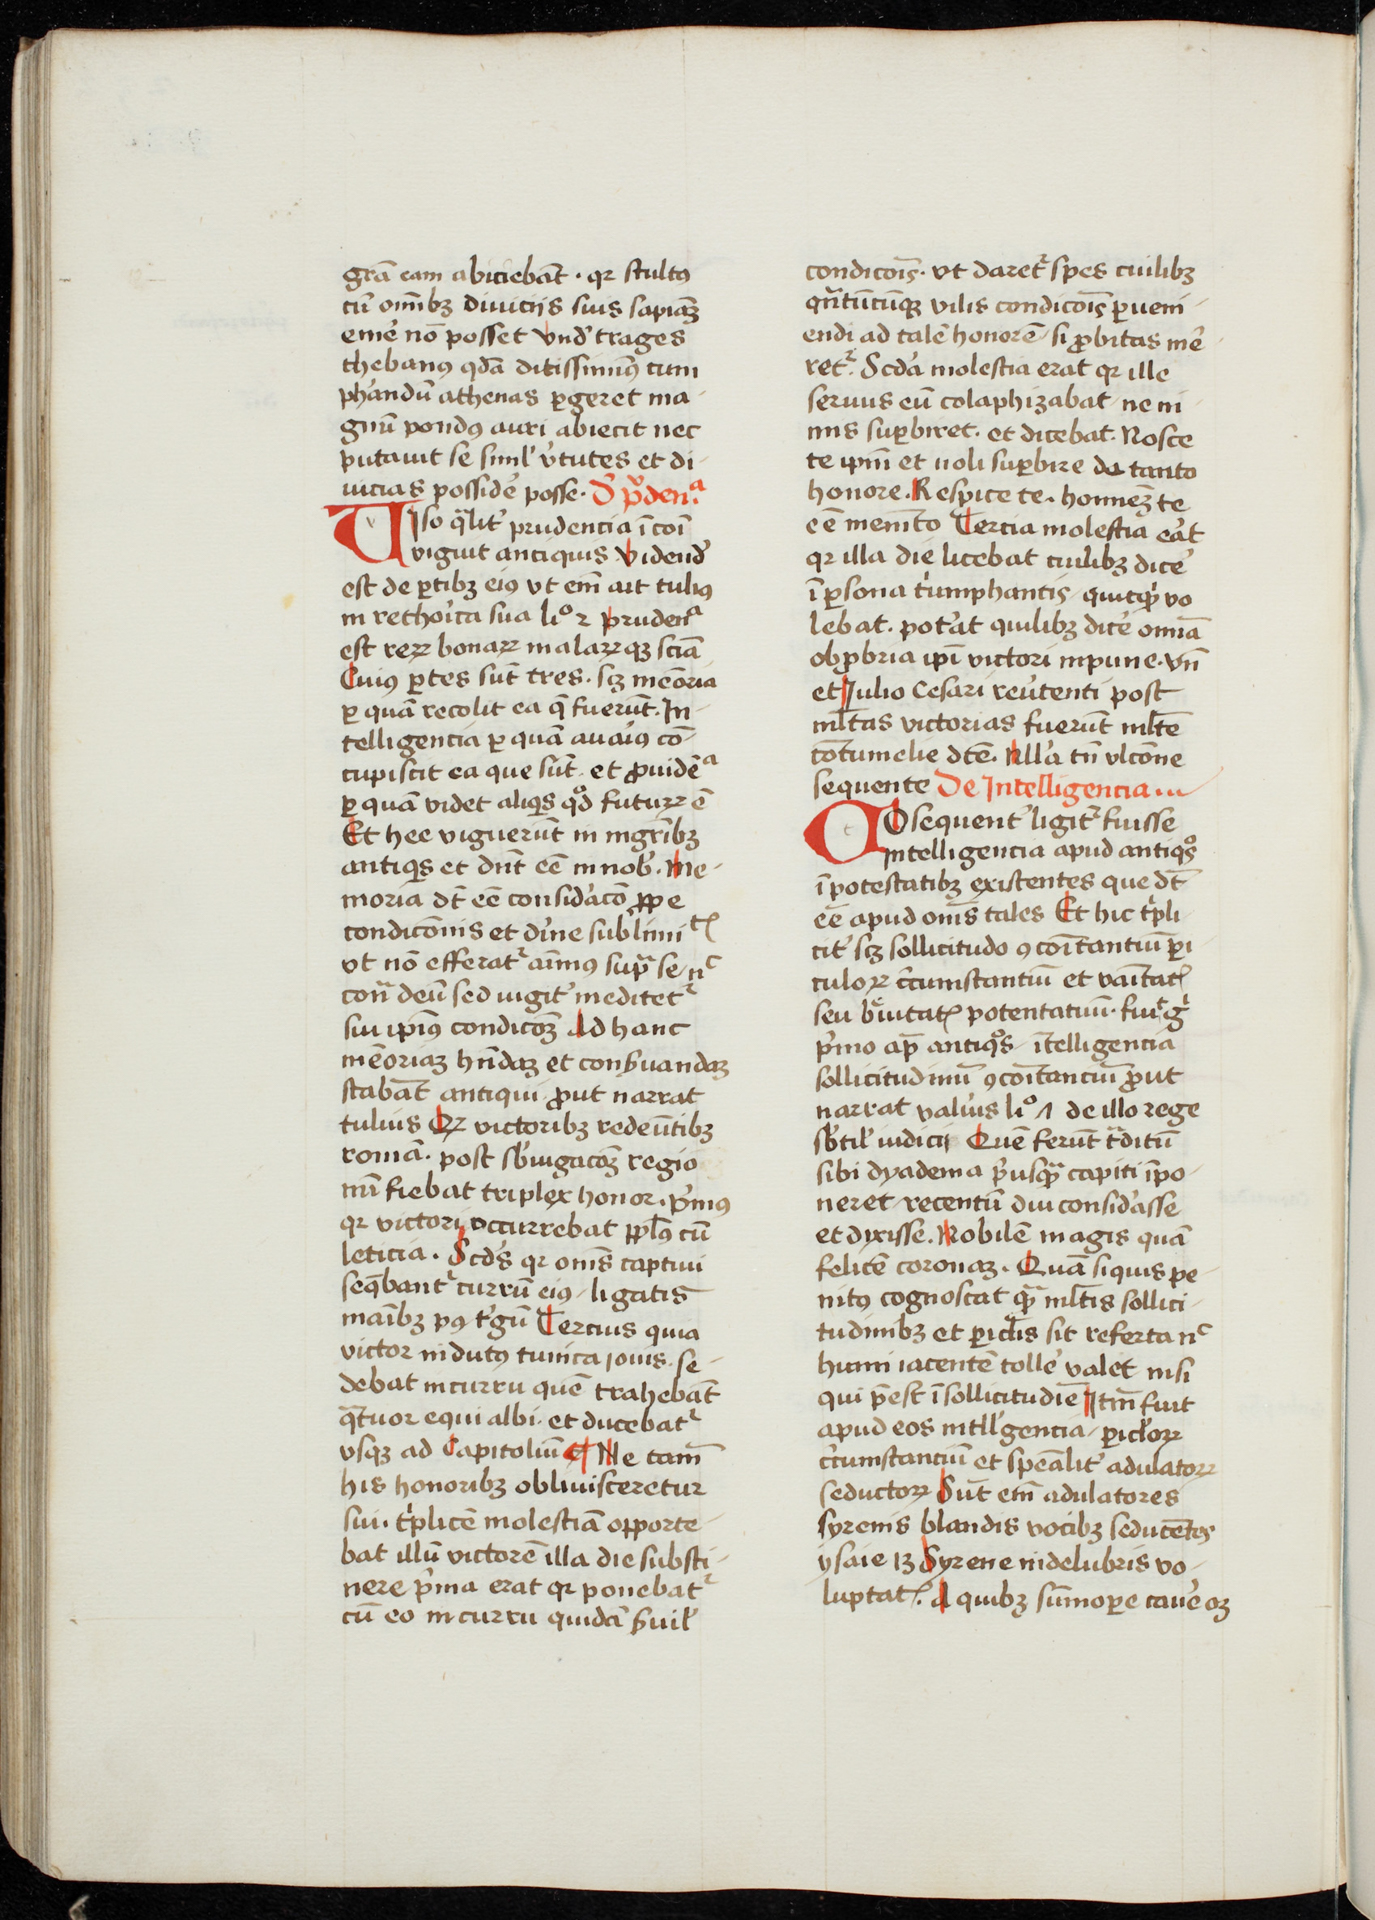 gr̄a eam abiciebāt · qr stultꝰ
cū om̄ibꝫ diuicijs suis sapiāꝫ
eme᷑ nō posset vnd᷑ trages
thebanꝰ qd̄ā ditissimꝰ cum
ph᷑andū athenas ꝑgeret ma-
gnū pondꝰ auri abiecit nec
putauit se siml᷑ v᷑tutes et di-
uicias posside᷑ posse · D᷑ pͦdenᵃ
Viso qᵃlit᷑ prudencia ī coī
viguit antiquis vidend᷑
est de ꝑtibꝫ eiꝰ vt em̄ ait tuliꝰ
in retho᷑ica sua liᵒ 2 prudenᵃ
est reꝝ bonaꝝ malaꝝqꝫ sciā
Cuiꝰ ꝑtes sūt tres · scꝫ memōria
ꝑ quā recolit ea q̄ fuerūt · In-
telligencia ꝑ quā aīaꝰ cō-
cupiscit ea que sūt · et ꝓuidēᵃ
ꝑ quā videt aliqis qᵒd futuꝝ ē
Et hec viguerūt in mgr̄ibꝫ
antiqis et dn̄t eē in nob᷑ · Me-
moria dt̄ eē consid᷑acō ꝓpe
condicōnis et di᷑ne sublimitꝭ
vt nō efferatᷣ aīmꝰ supᵃ se / nᶜ
conᵃ deū sed iugit᷑ meditetᷣ
sui ipīꝰ condicōꝫ Ad hanc
memōriaꝫ hn̄daꝫ et conẜuandaꝫ
stabāt antiqui ꝓut narrat
tulius Qꝛ victoribꝫ redeūtibꝫ
romā · post sb᷑iugacōꝫ regio
nū fiebat triplex honor · p᷑mꝰ
qr victori occurrebat ppl̄s cū
leticia · Scd᷑s qr om̄s captiui
seq̄bantᷣ currū eiꝰ / ligatis
maībꝫ pꝰ t᷑gū Tercius quia
victor indutꝰ tunica iouis · se-
debat in curru quē trahebāt
qᵃtuor equi albi · et ducebatᷣ
vsqꝫ ad Capitoliū ¶ Ne tam̄
his honoribꝫ obliuisceretur
sui · tⁱplicē molestiā opporte-
bat illū victorē illa die susti-
nere p᷑ma erat qr ponebatᷣ
cū eo in curru quidā ẜuil᷑
condicōis · vt daretᷣ spes cuilibꝫ
qn̄tūcūqꝫ vilis condicōis ꝑueni-
endi ad talē honorē / si ꝓbitas me᷑-
retᷣ · Scd᷑a molestia erat qr ille
seruus eū colaphizabat / ne ni
mis suꝑbiret · et dicebat · Nosce
te ip̄m et noli suꝑbire de tanto
honore · Respice te · hominēꝫ te
eē memēto Tercia molestia eāt
qr illa die licebat cuilibꝫ dice᷑
ī ꝑsona tⁱumphantis / quicqⁱd vo
lebat · pot᷑at quilibꝫ dice᷑ om̄ia
obꝓbria ip̄i victori inpune · vn̄
et Julio Cesari reu᷑tenti post
ml̄tas victorias fuerūt ml̄te
cōtumelie dc̄e · Nll᷑a tn̄ vlcōne
sequente De Intelligencia
Cōsequent᷑ ligitᷣ fuisse
intelligencia apud antiqᵒs
ī potestatibꝫ existentes que dt̄
eē apud om̄s tales Et hic tⁱpli
cit᷑ scꝫ sollicitudo ꝯcoītantiū ꝑi
culoꝝ c᷑cumstantiū et vaītatꝭ
seu breuitatꝭ potentatuū · fuit gⁱ
p᷑mo ap̄ antiqᵒs / ītelligencia
sollicitudinū ꝯcoītanciū ꝓut
narrat valīus liᵒ 1 de illo rege
sb᷑til᷑ iudicij Quē ferūt tᵃditū
sibi dyadema p᷑usqᵃ capiti īpo
neret / recentū diu consid᷑asse
et dyxisse · Nobilē magis quā
felicē coronaꝫ · Quā siquis pe-
nitꝰ cognoscat qᵃ ml̄tis sollici-
tudinibꝫ et ꝑicl̄is sit referta nᶜ
humi iacentē tolle᷑ valet nisi
qui p̄est ī sollicitudīe ¶ Itm̄ fuit
apud eos intll᷑gencia / ꝑicl᷑oꝝ
c᷑cumstanciū et spēalit᷑ adulatoꝝ
seductoꝝ Sūt em̄ adulatores
syrenis blandis vocibꝫ seducētes
ysaie 13 Syrene in delubris vo-
luptatꝭ · A quibꝫ sūmoꝑe caue᷑ oꝫ